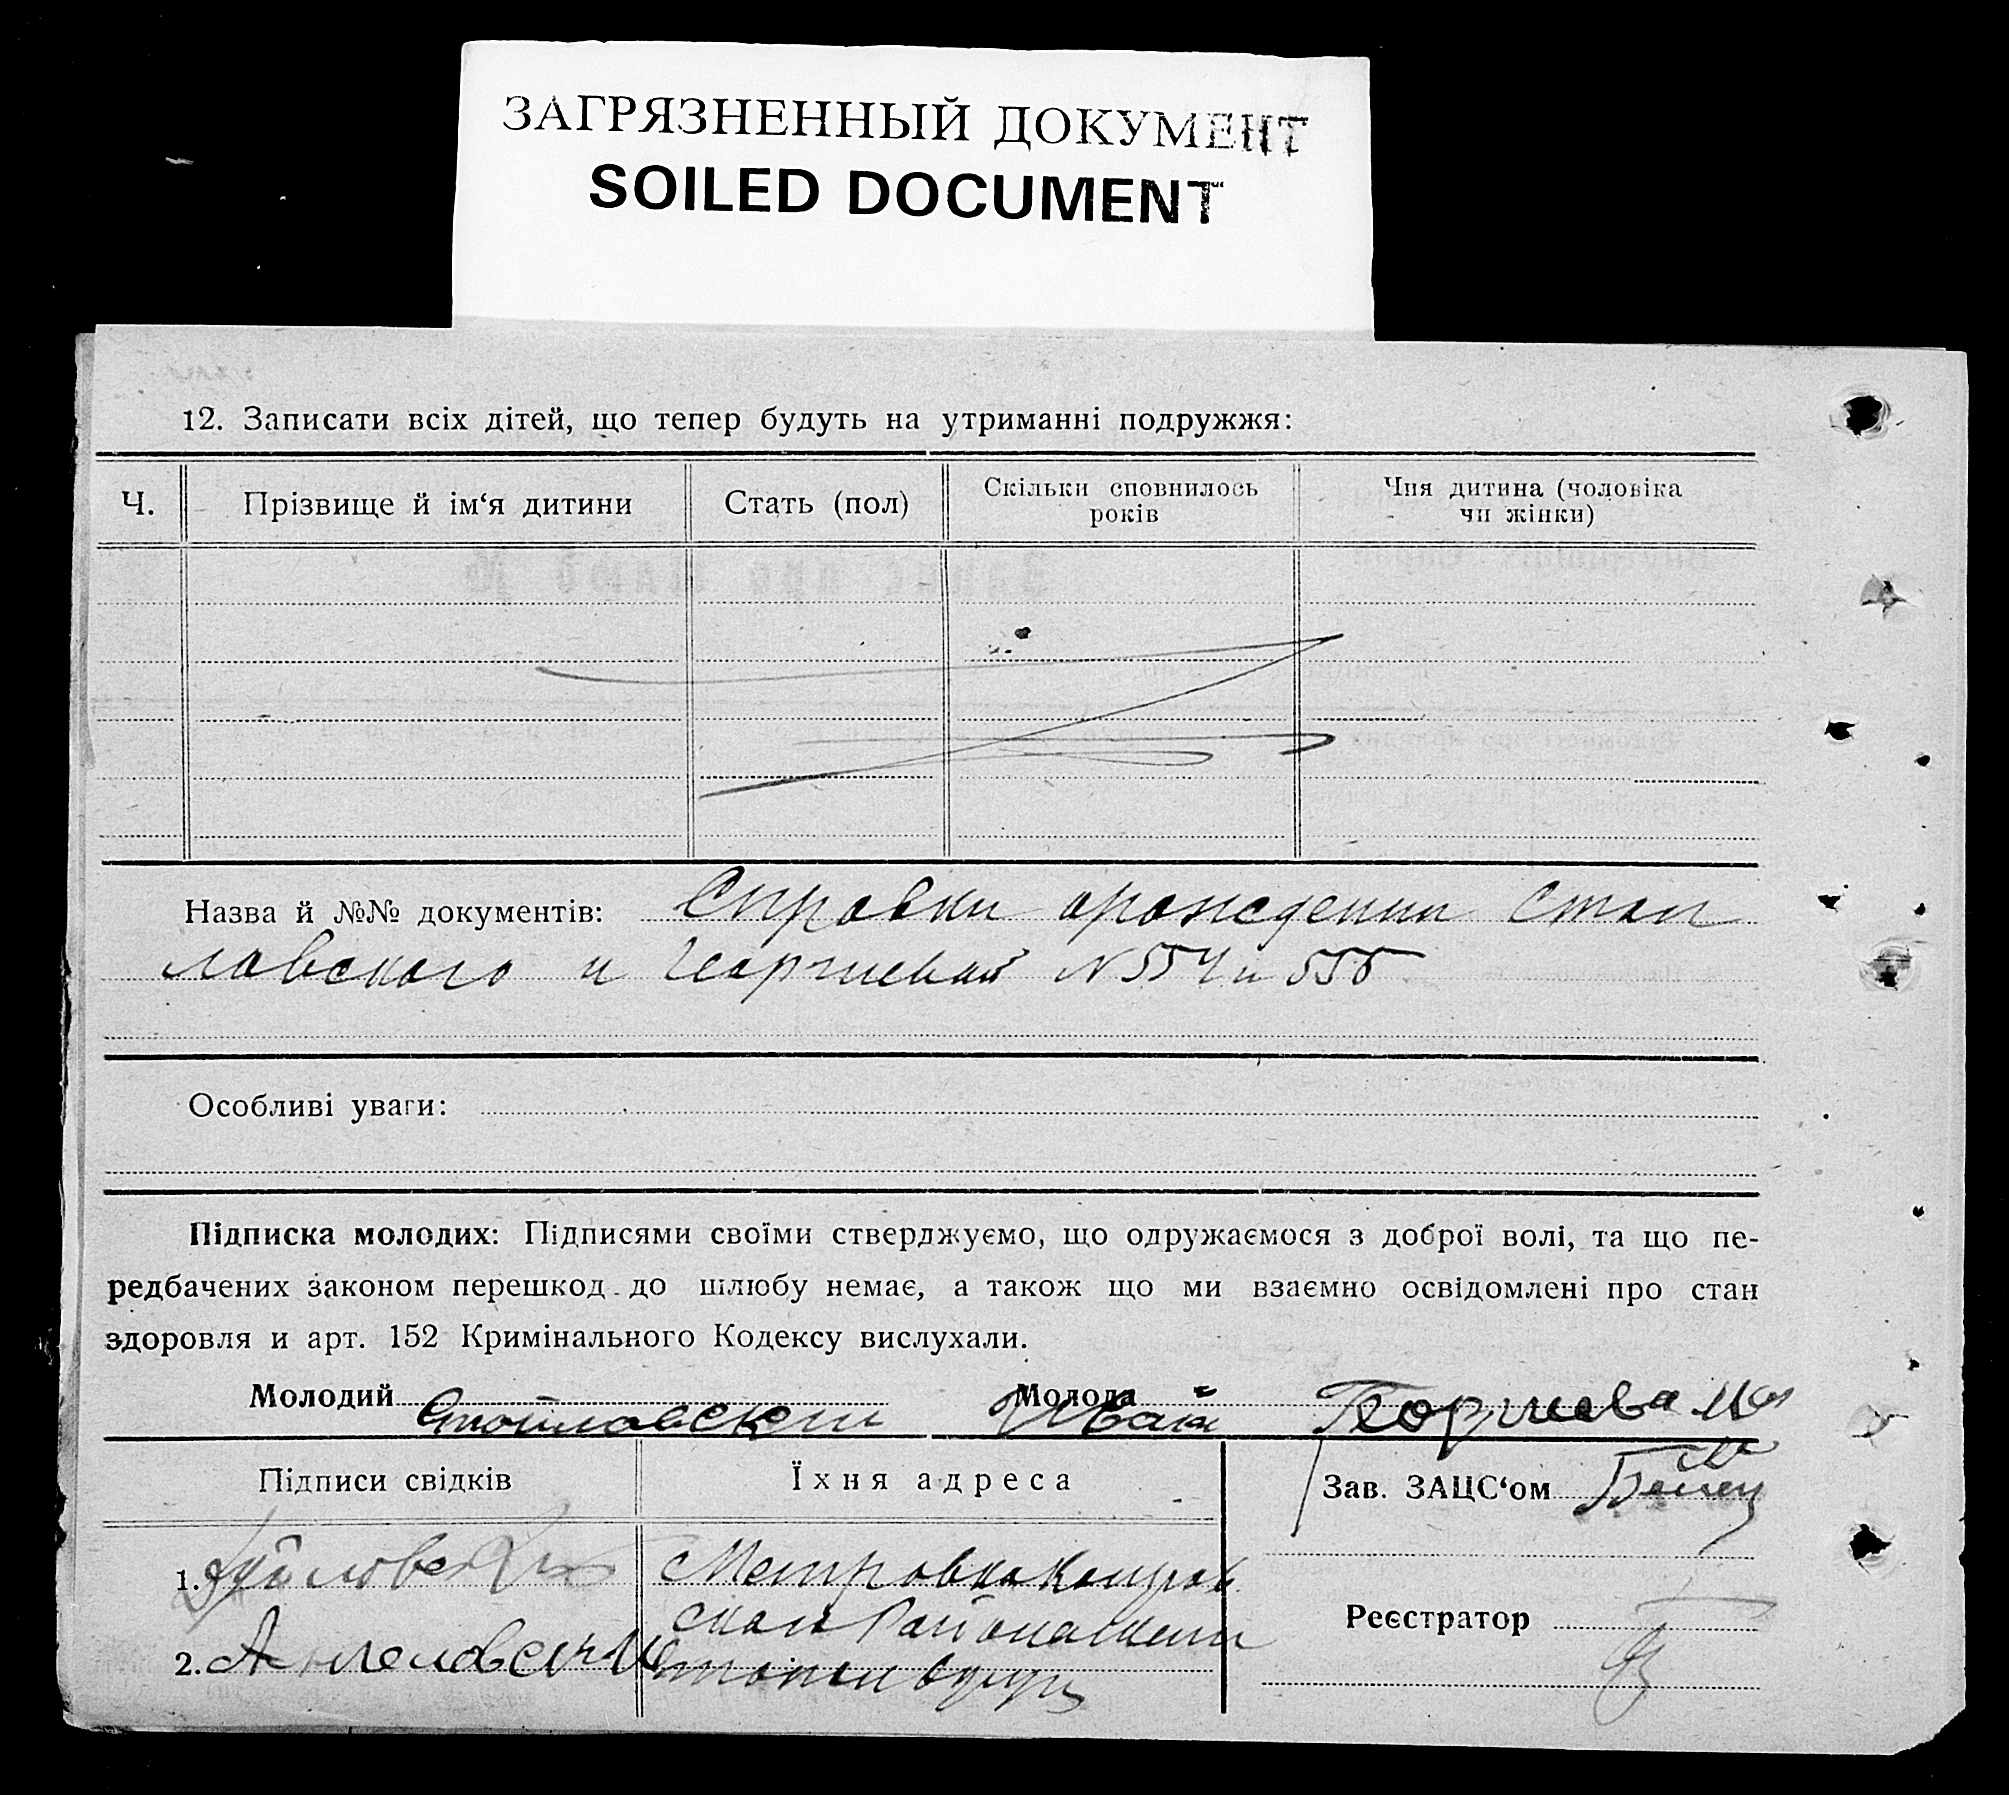 ЗАГРЯЗНЕННЫЙ ДОКУМЕНТ
SOILED DOCUMENT
12. Записати всіх дітей, що тепер будуть на утриманні подружжя:
Ч. Прізвище й ім‘я дитини Стать (пол) Скільки сповнилось років Чия дитина (чоловіка чи жінки)
Назва й №№ документів: Справки орождении Стои
ловского и Георгиевай N 554 и 555
Особливі уваги:
Підписка молодих: Підписями своїми стверджуємо, що одружаємося з доброї волі, та що пе-
редбачених законом перешкод до шлюбу немає, а також що ми взаємно освідомлені про стан
здоровля и арт. 152 Кримінального Кодексу вислухали.
Молодий Стоиловский Иван Молода Георгиева
Підписи свідків Їхня адреса Зав. ЗАЦС‘ом
1.
Реєстратор
2.